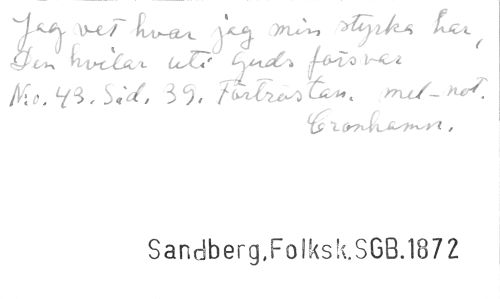 Jag vet hvar jag min styrka har,
Den hvilar uti Guds försvar
N:o. 43. Sid. 39. Förtröstan. mel-not.
Cronhamn.
Sandberg,Folksk.SGB.1872